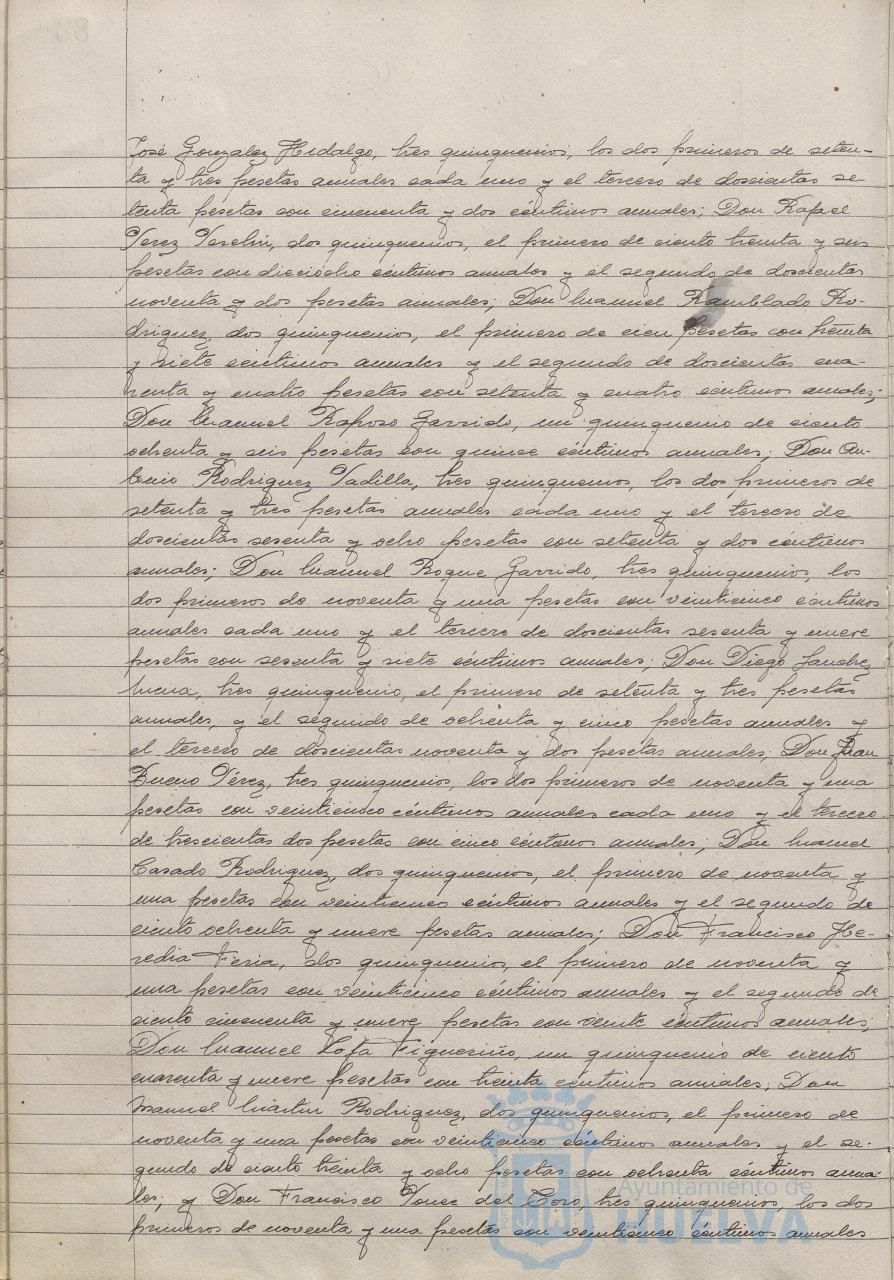 José Gonzalez Hidalgo, tres quinquenios, los dos primeros de seten-
ta y tres pesetas anuales cada uno y el tercero de doscientas se-
tenta pesetas con cincuenta y dos céntimos anuales; Don Rafael
Perez, dos quinquenios, el primero de ciento treinta y seis
pesetas con dieciocho céntimos anuales y el segundo de doscientas
noventa y dos pesetas anuales; Don Manuel Ramblado Ro-
driguez, dos quinquenios, el primero de cien pesetas con treinta
y siete céntimos anuales y el segundo de doscientas cua-
renta y cuatro pesetas con setenta y cuatro céntimos anuales;
Don Manuel Raposo Garrido, un quinquenio de ciento
ochenta y seis pesetas con quince céntimos anuales; Don An-
tonio Rodriguez Padilla, tres quinquenios, los dos primeros de
setenta y tres pesetas anuales cada uno y el tercero de
doscientas sesenta y ocho pesetas con setenta y dos céntimos
anuales; Don Manuel Roque Garrido, tres quinquenios, los
dos primeros de noventa y una pesetas con veinticinco céntimos
anuales cada uno y el tercero de doscientas sesenta y nueve
pesetas con sesenta y siete céntimos anuales; Don Diego Sanchez
Mena, tres quinquenio, el primero de setenta y tres pesetas
anuales, y el segundo de ochenta y cinco pesetas anuales y
el tercero de doscientas noventa y dos pesetas anuales; Don Juan
Bueno Pérez, tres quinquenios, los dos primeros de noventa y una
pesetas con veinticinco céntimos anuales cada uno y el tercero
de trescientas dos pesetas con cinco céntimos anuales; Don Manuel
Casado Rodriguez, dos quinquenios, el primero de noventa y
una pesetas con veinticinco céntimos anuales y el segundo de
ciento ochenta y nueve pesetas anuales; Don Francisco He-
redia Feria, dos quinquenios, el primero de noventa y
una pesetas con veinticinco céntimos anuales y el segundo de
ciento cincuenta y nueve pesetas con veinte céntimos anuales;
Don Manuel Figueriño, un quinquenio de ciento
cuarenta y nueve pesetas con treinta céntimos anuales; Don
Manuel Martin Rodriguez, dos quinquenios, el primero de
noventa y una pesetas con veinticinco céntimos anuales y el se-
gundo de ciento treinta y ocho pesetas con ochenta céntimos anua-
les; y Don Francisco Ponce del Toro, tres quinquenios, los dos
primeros de noventa y una pesetas con veinticinco céntimos anuales
Ayuntamiento de
HUELVA